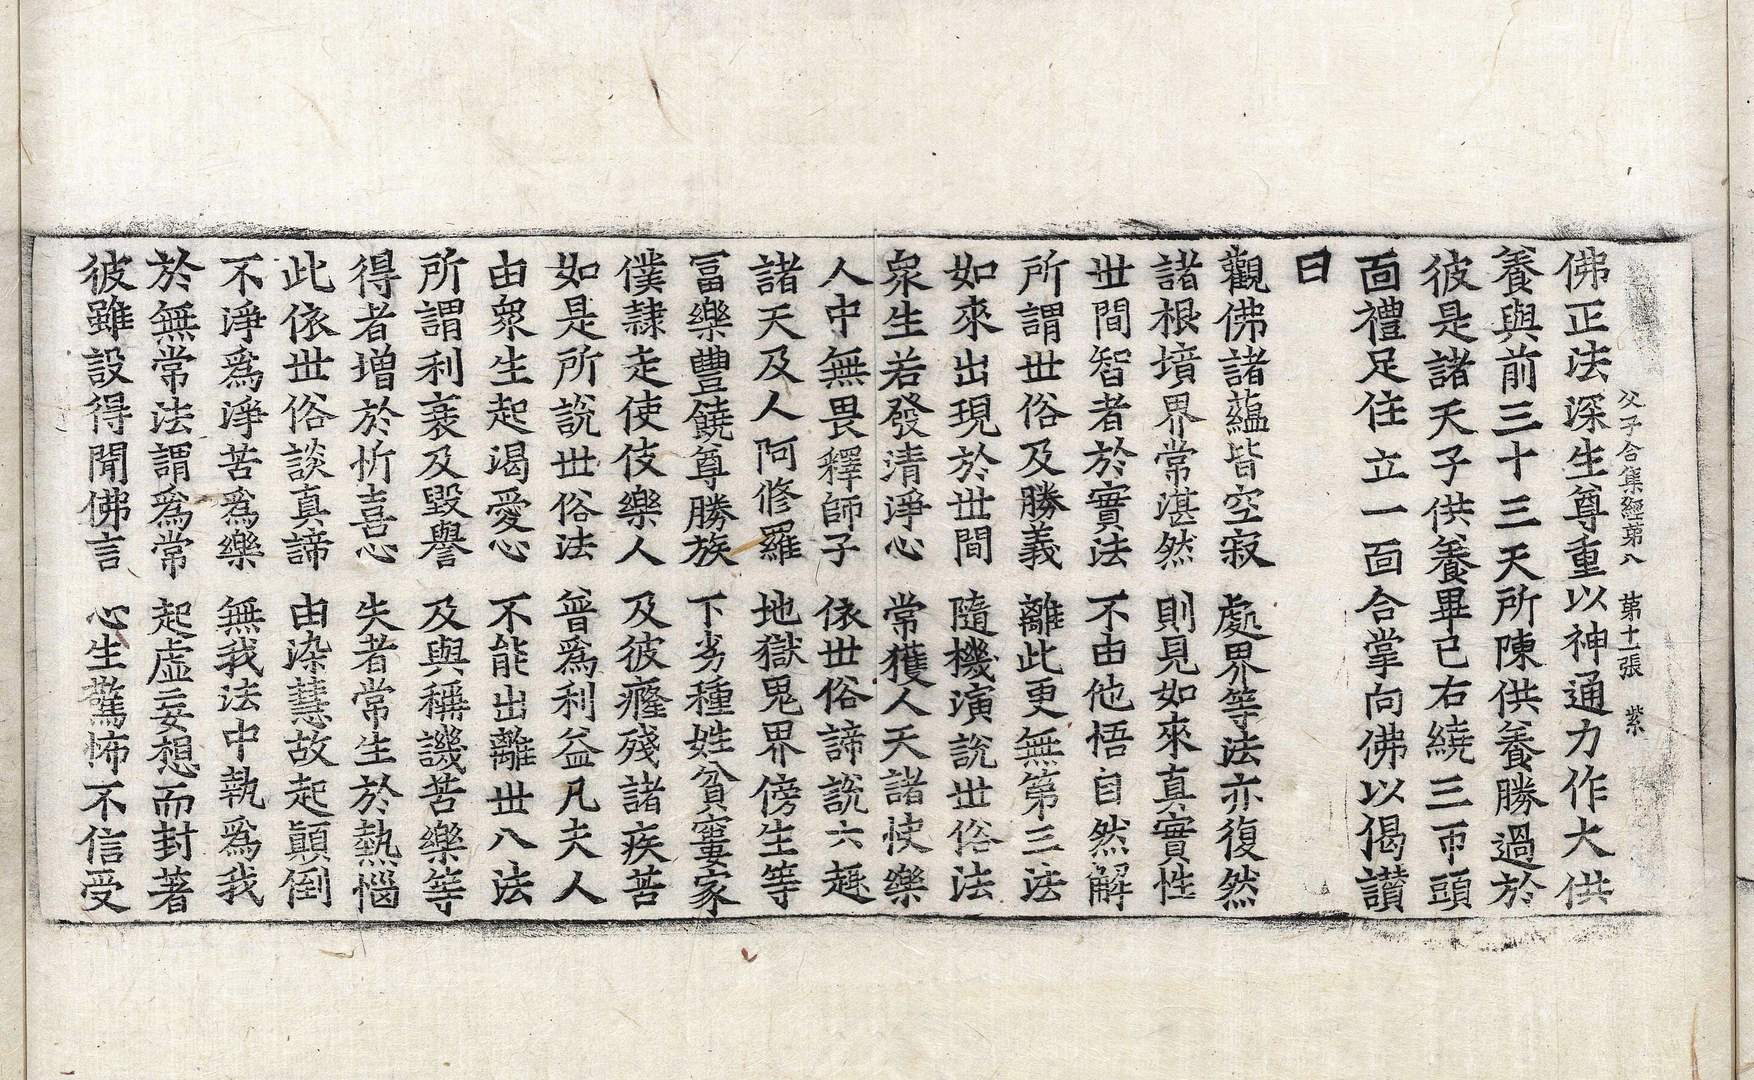 父子合集經第八 第十一張 紫
佛正法深生尊重以神通力作大供
養與前三十三天所陳供養勝過於
彼是諸天子供養畢已右繞三帀頭
面禮足住立一面合掌向佛以偈讃
曰
觀佛諸蘊皆空寂 處界等法亦復然
諸根境界常湛然 則見如來真實性
世間智者於實法 不由他悟自然解
所謂世俗及勝義 離此更無第三法
如來出現於世間 隨機演說世俗法
衆生若發清淨心 常獲人天諸快樂
人中無畏釋師子 依世俗諦說六趣
諸天及人阿修羅 地獄鬼界傍生等
冨樂豐饒尊勝族 下劣種姓貧窶家
僕隷走使伎樂人 及彼癃殘諸疾苦
如是所說世俗法 普爲利益凡夫人
由衆生起渴愛心 不能出離世八法
所謂利衰及毀譽 及與稱譏苦樂等
得者增於忻喜心 失者常生於熱惱
此依世俗談真諦 由染慧故起顚倒
不淨爲淨苦爲樂 無我法中執爲我
於無常法謂爲常 起虛妄想而封著
彼雖設得聞佛言 心生驚怖不信受